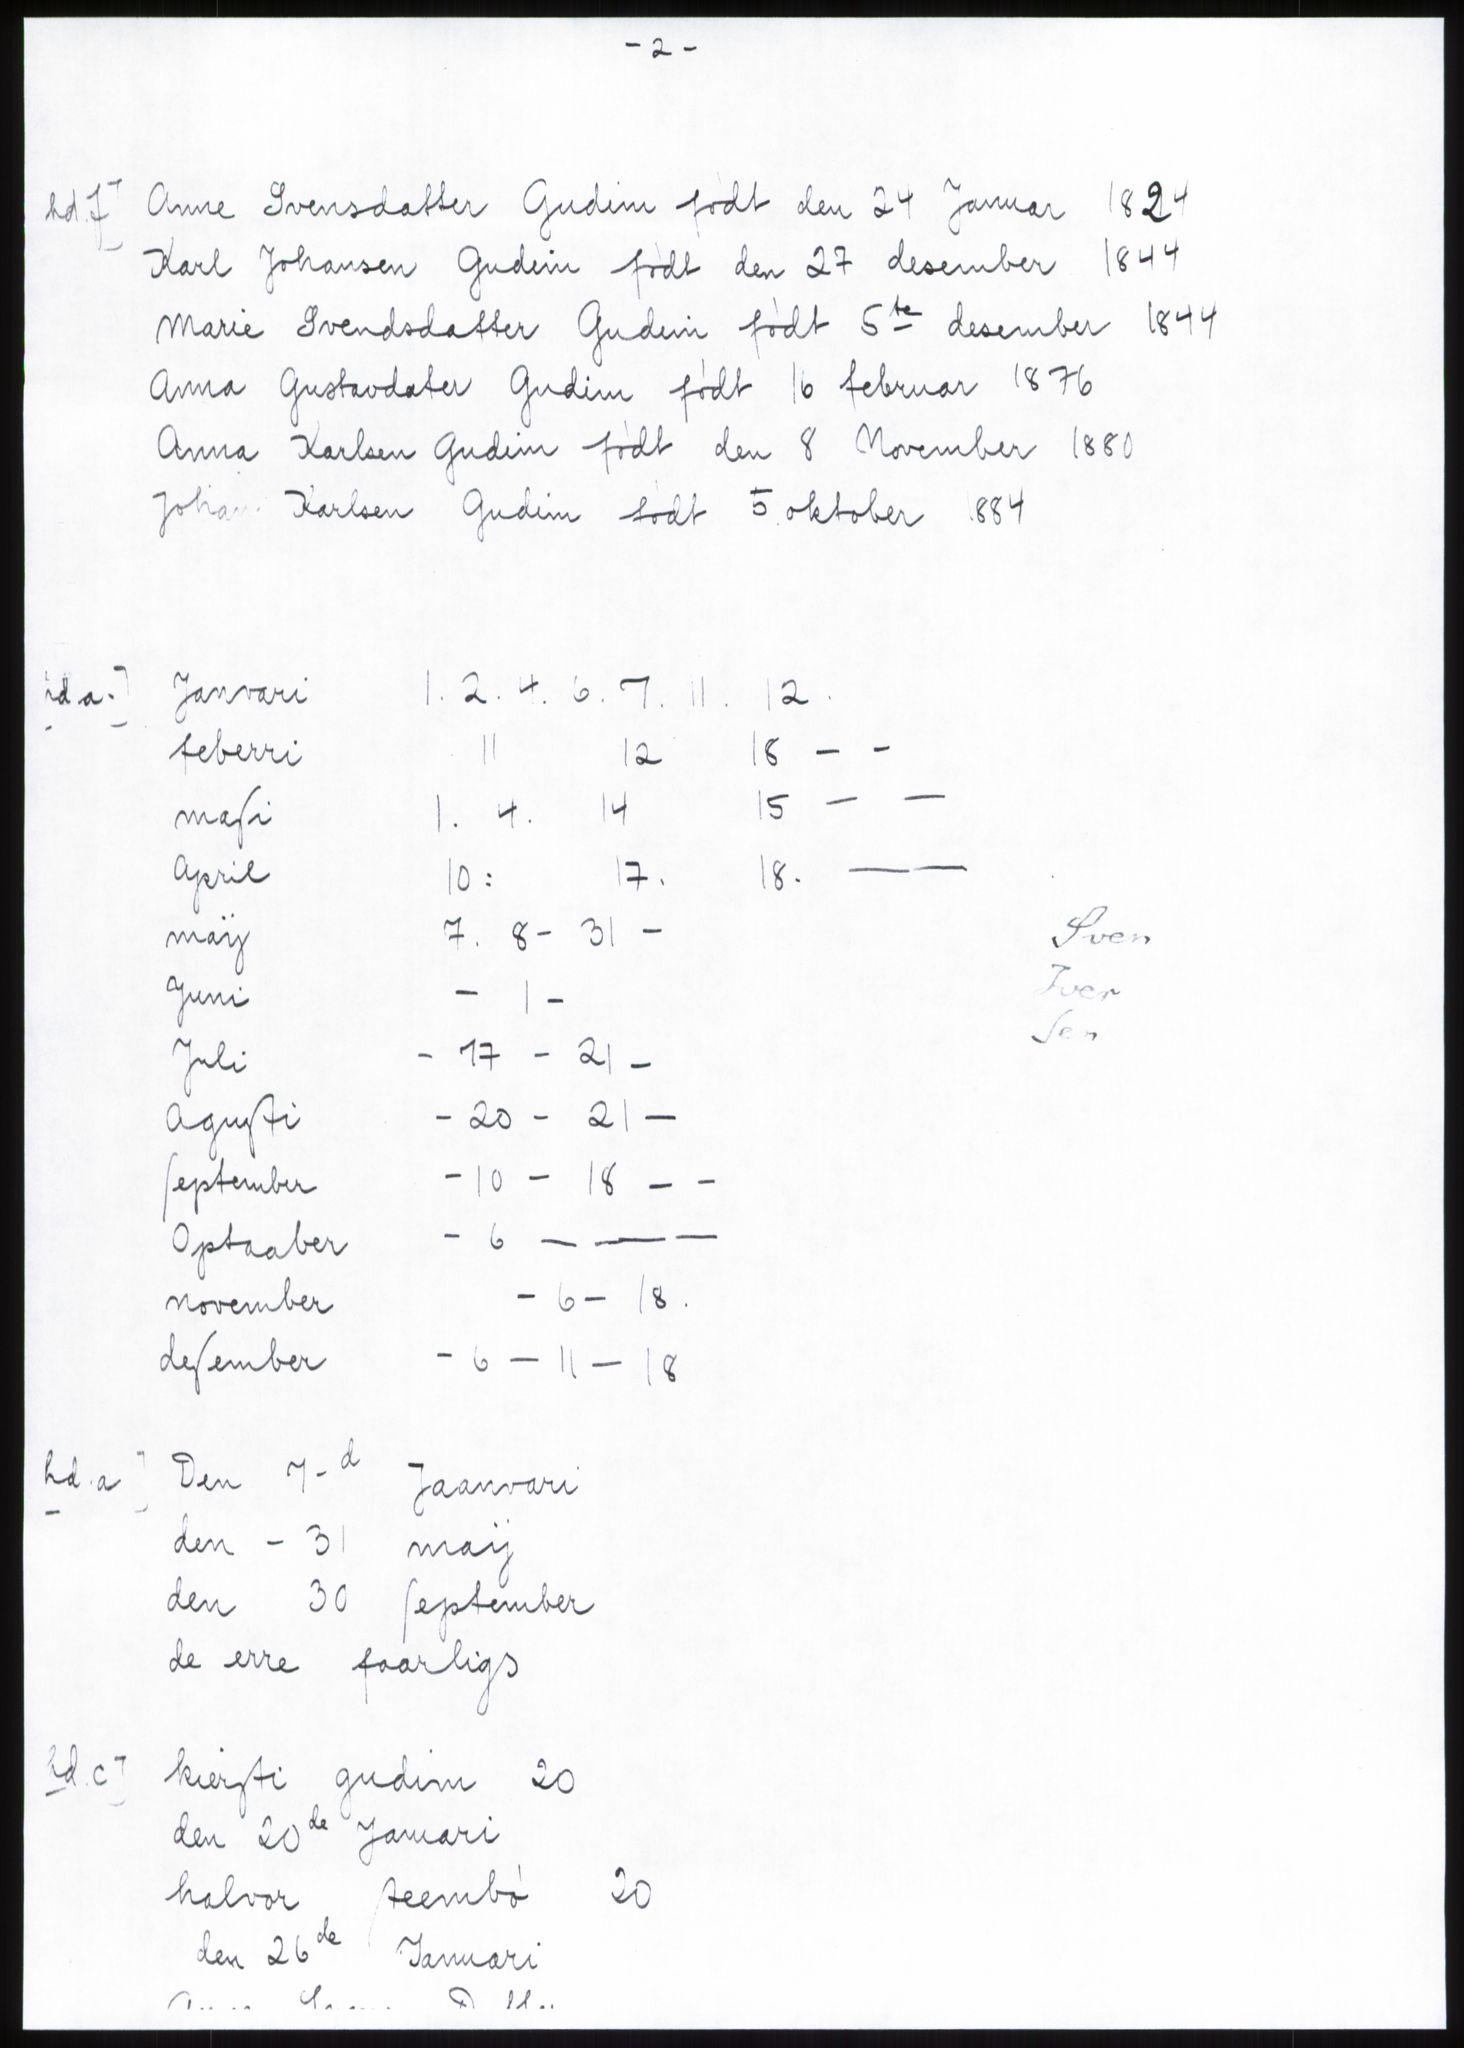 - 2 -
hd. f] Anne Svensdatter Gudim født den 24 Januar 1824
Karl Johansen Gudeim født den 27 desember 1844
Marie Svendsdatter Gudeim født 5te desember 1844
Anna Gustavdater Gudim født 16 februar 1876
Anna Karlsen Gudim født den 8 November 1880
Johan Karlsen Gudim født 5. oktober 1884
hd. a.] Janvari 1. 2. 4. 6. 7. 11. 12.
feberri 11 12 18 - -
maſi 1. 4. 14 15 - -
April 10: 17. 18. — —
maij 7. 8 - 31 - Sven
Juni - 1 - Iver
Juli - 17 - 21 - Sen
Aguſti - 20 - 21 -
ſeptember - 10 - 18 - -
Optaaber - 6 — — —
november - 6 - 18.
deſember - 6 - 11 - 18
hd. a] Den 7-d Jaanvari
den - 31 maij
den 30 ſeptember
de erre faarligs
hd. c] kierſti gudim 20
den 20de Januari
halvor ſteembø 20
den 26de Januari